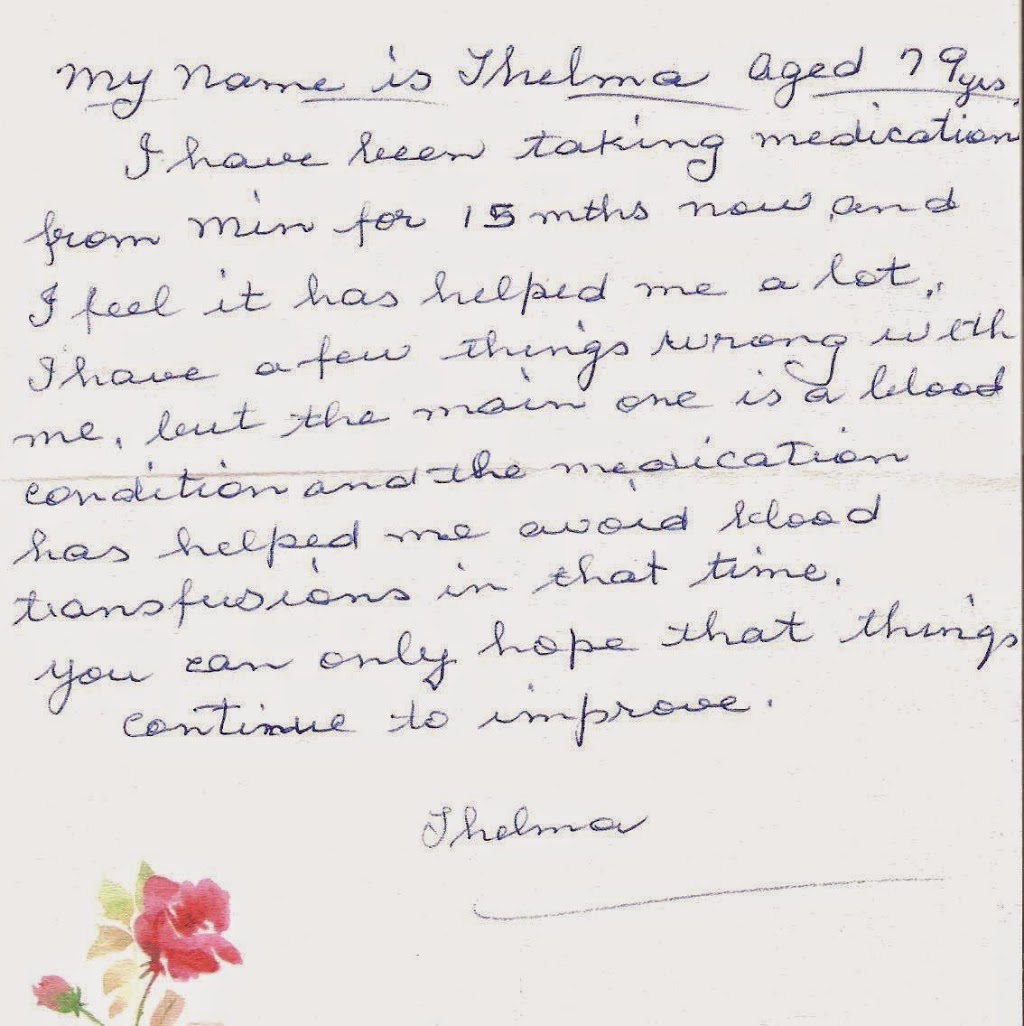 My Name is Thelma aged 79yrs.
I have been taking medication
from Min for 15 mths now, and
I feel it has helped me a lot,.
I have a few things wrong with
me, but the main one is a blood
condition and the medication
has helped me avoid blood
transfusions in that time.
you can only hope that things
continue to improve.
Thelma